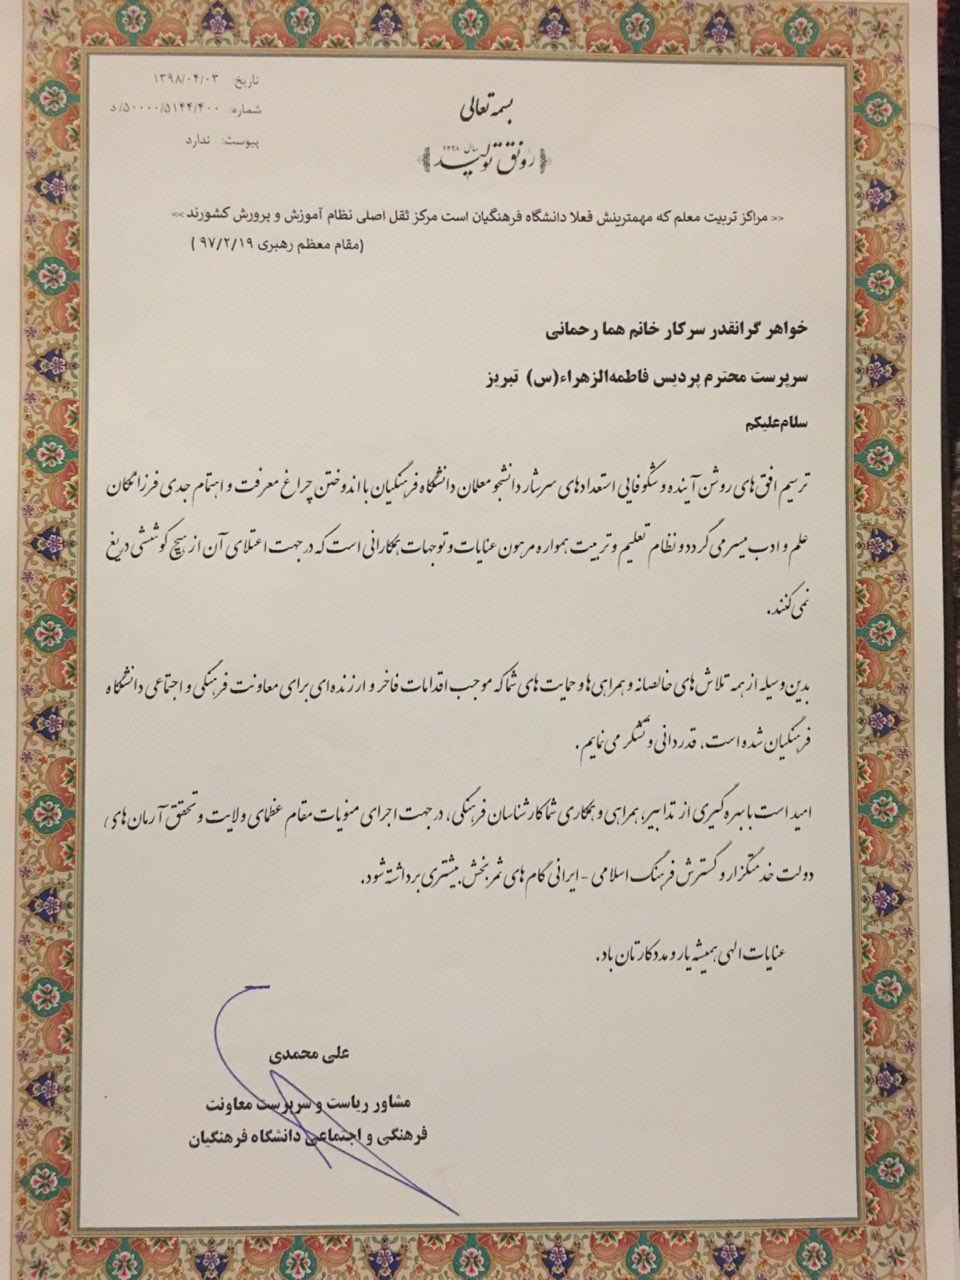 بسمه تعالی
تاریخ: ۱۳۹۸/۰۴/۰۳
شماره: ۵۰۰۰۰/۵۱۴۴/۴۰۰/د
پیوست: ندارد
سال ۱۳۹۸
رونق تولید
<< مراکز تربیت معلم که مهمترینش فعلا دانشگاه فرهنگیان است مرکز ثقل اصلی نظام آموزش و پرورش کشورند >>
(مقام معظم رهبری ۹۷/۲/۱۹ )
خواهر گرانقدر سرکار خانم هما رحمانی
سرپرست محترم پردیس فاطمه‌الزهراء(س) تبریز
سلام‌علیکم
ترسیم افق های روشن آینده و شکوفایی استعدادهای سرشار دانشجو معلمان دانشگاه فرهنگیان با اندوختن چراغ معرفت و اهتمام جدی فرزانگان
علم و ادب میسر می گردد و نظام تعلیم و تربیت همواره مرهون عنایات و توجهات همکارانی است که در جهت اعتلای آن از هیچ کوششی دریغ
نمی کنند.
بدین وسیله از همه تلاش های خالصانه و همراهی ها و حمایت های شما که موجب اقدامات فاخر و ارزنده ای برای معاونت فرهنگی و اجتماعی دانشگاه
فرهنگیان شده است، قدردانی و تشکر می نمایم.
امید است با بهره گیری از تدابیر، همراهی و همکاری شما کارشناسان فرهنگی، در جهت اجرای منویات مقام عظمای ولایت و تحقق آرمان های
دولت خدمتگزار و گسترش فرهنگ اسلامی - ایرانی گام های ثمربخش بیشتری برداشته شود.
عنایات الهی همیشه یار و مددکارتان باد.
علی محمدی
مشاور ریاست و سرپرست معاونت
فرهنگی و اجتماعی دانشگاه فرهنگیان